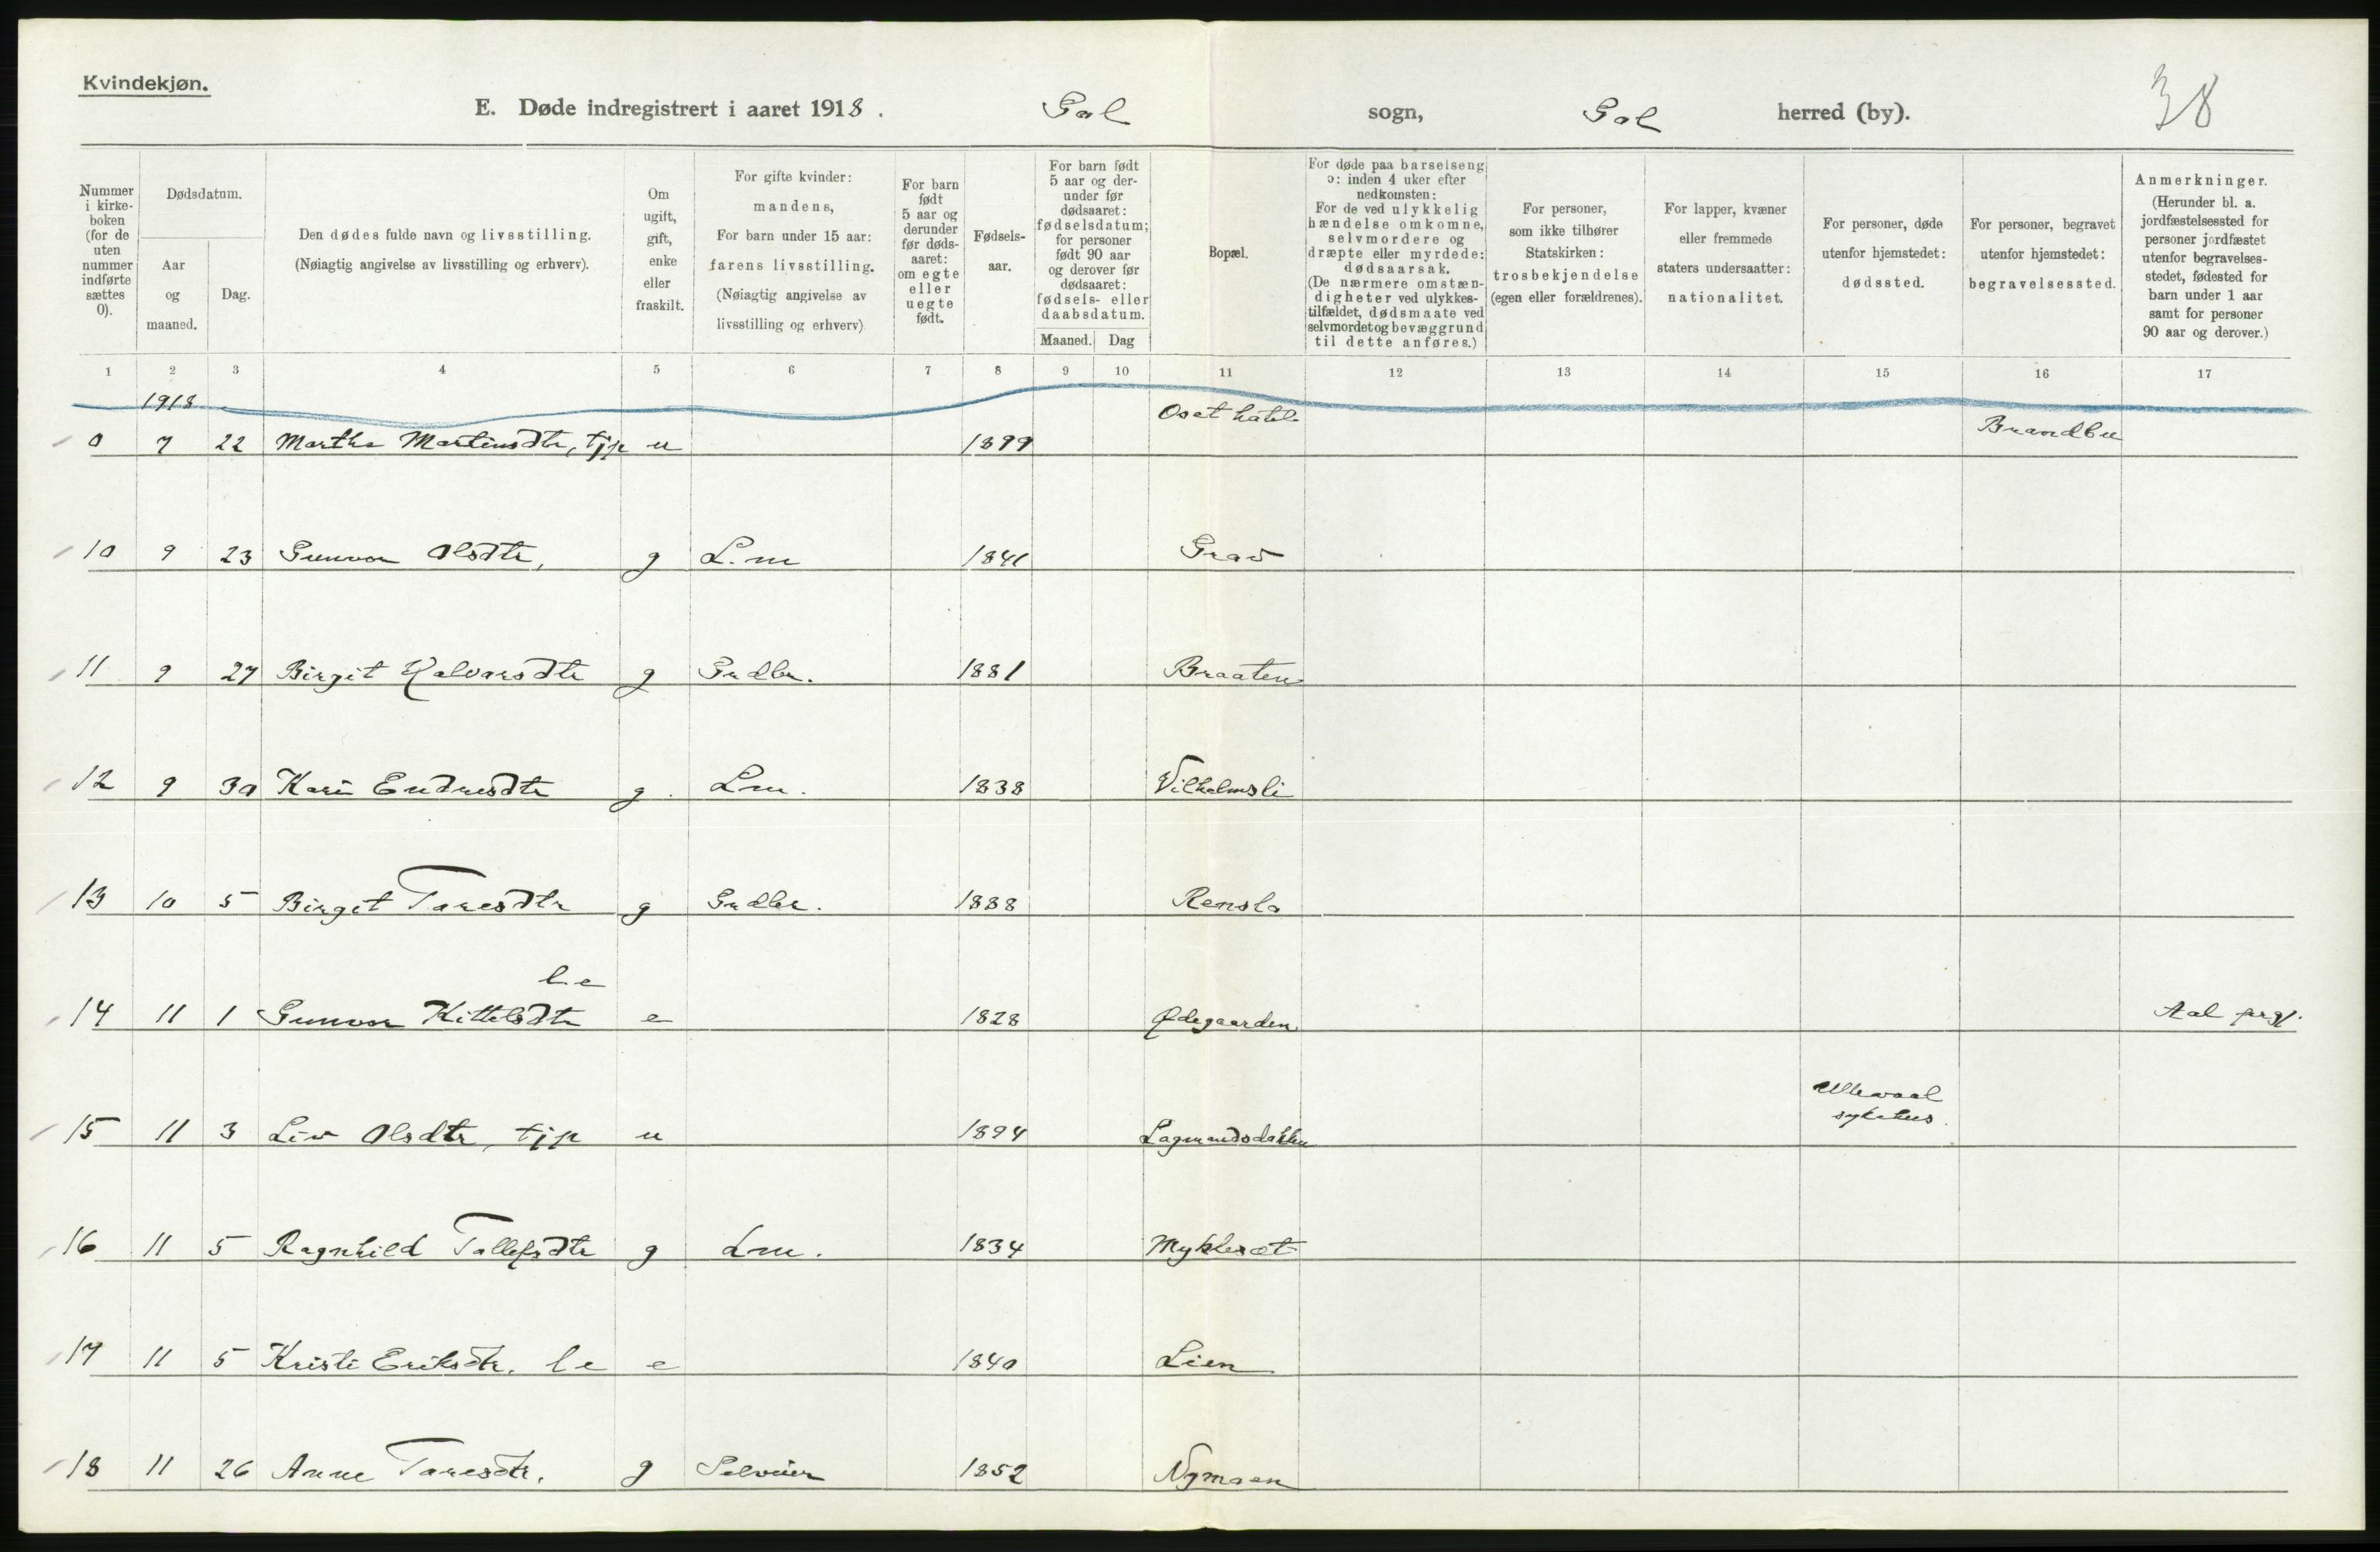 Kvindekjøn.
E. Døde indregistrert i aaret 1918. Gol sogn, Gol herred (by). 38
Nummer i kirkeboken (for de uten nummer indførte sættes 0).
Dødsdatum.
Aar og maaned.
Dag.
Den dødes fulde navn og livsstilling.
(Nøiagtig angivelse av livsstilling og erhverv).
Om ugift, gift, enke eller fraskilt.
For gifte kvinder: mandens,
For barn under 15 aar: farens livsstilling.
(Nøiagtig angivelse av livsstilling og erhverv)
For barn født 5 aar og derunder før dødsaaret: om egte eller uegte født.
Fødselsaar.
For barn født 5 aar og derunder før dødsaaret: fødselsdatum; for personer født 90 aar og derover før dødsaaret: fødsels- eller daabsdatum.
Maaned. Dag
Bopæl.
For døde paa barselseng ɔ: inden 4 uker efter nedkomsten: For de ved ulykkelig hændelse omkomne, selvmordere og dræpte eller myrdede: dødsaarsak. (De nærmere omstændigheter ved ulykkestilfældet, dødsmaate ved selvmordet og bevæggrund til dette anføres.)
For personer, som ikke tilhører Statskirken: trosbekjendelse (egen eller forældrenes).
For lapper, kvæner eller fremmede staters undersaatter: nationalitet.
For personer, døde utenfor hjemstedet: dødssted.
For personer, begravet utenfor hjemstedet: begravelsessted.
Anmerkninger. (Herunder bl. a. jordfæstelsessted for personer jordfæstet utenfor begravelsesstedet, fødested for barn under 1 aar samt for personer 90 aar og derover.)
1 2 3 4 5 6 7 8 9 10 11 12 13 14 15 16 17
1918
0 7 22 Martha Martinsdtr, tjp u 1899 Oset hotel Brandbu
10 9 23 Gunvor Olsdtr, g L.m 1841 Grav
11 9 27 Birgit Halvorsdtr g Grdbr. 1881 Braaten
12 9 30 Kari Endresdtr g. Lm. 1838 Vilhelmsli
13 10 5 Birgit Toresdtr g Grdbr. 1888 Rensla
l.e
14 11 1 Gunvor Kittelsdtr e 1828 Ødegaarden Aal prgj.
15 11 3 Liv Olsdtr, tjp u 1894 Ullevaal sykehus.
16 11 5 Ragnhild Tollefsdtr g Lm. 1834 Mykleset
17 11 5 Kristi Eriksdtr. l e e 1840 Lien
18 11 26 Anne Toresdtr. g Selveier 1852 Nymoen